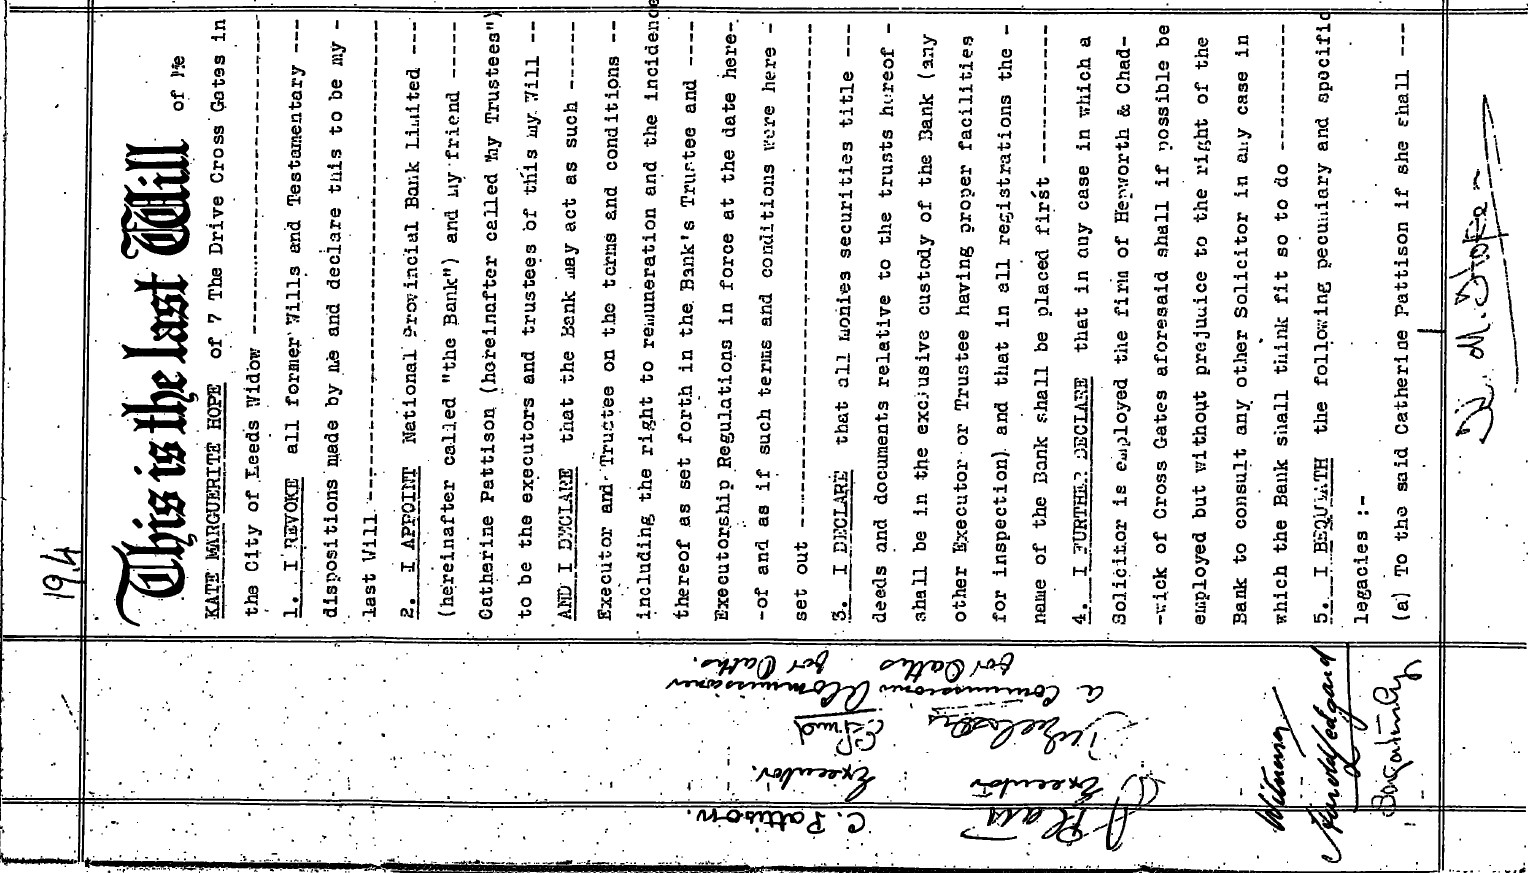 194
This is the last Will of Me
KATE MARGUERITE HOPE of 7 The Drive Cross Gates in
the City of Leeds Widow --------------------------
1. I REVOKE all former Wills and Testamentary ---
dispositions made by me and declare this to be my -
last Will ----------------------------------------
2. I APPOINT National Provincial Bank Limited ---
(hereinafter called "the Bank") and my friend -----
Catherine Pattison (hereinafter called "my Trustees")
to be the executors and trustees of this my Will --
AND I DECLARE that the Bank may act as such ------
Executor and Trustee on the terms and conditions --
including the right to remuneration and the incidence
thereof as set forth in the Bank's Trustee and ----
Executorship Regulations in force at the date here-
-of and as if such terms and conditions were here -
set out ------------------------------------------
3. I DECLARE that all monies securities title ---
deeds and documents relative to the trusts hereof -
shall be in the exclusive custody of the Bank (any
other Executor or Trustee having proper facilities
for inspection) and that in all registrations the -
name of the Bank shall be placed first -----------
4. I FURTHER DECLARE that in any case in which a
Solicitor is employed the firm of Hepworth & Chad-
-wick of Cross Gates aforesaid shall if possible be
employed but without prejudice to the right of the
Bank to consult any other Solicitor in any case in
which the Bank shall think fit so to do ----------
5. I BEQUEATH the following pecuniary and specific
legacies :-
(a) To the said Catherine Pattison if she shall ---
C. Pattison.
Executor.
A Commissioner
for Oaths.
Executor
a Commissioner
for Oaths
Witness